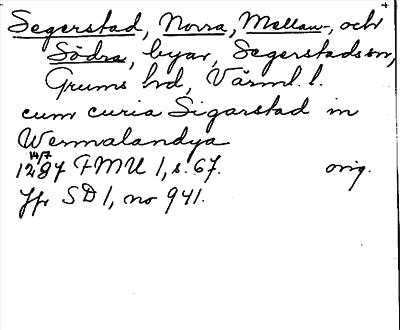 Segerstad, Norra, Mellan-, och
Södra, byar, Segerstads sn,
Grums hd, Värml. l.
cum curia Sigarstad in
Wermalandya
14/7
1287 FMU 1, s. 67. orig.
Jfr SD 1, no 941.